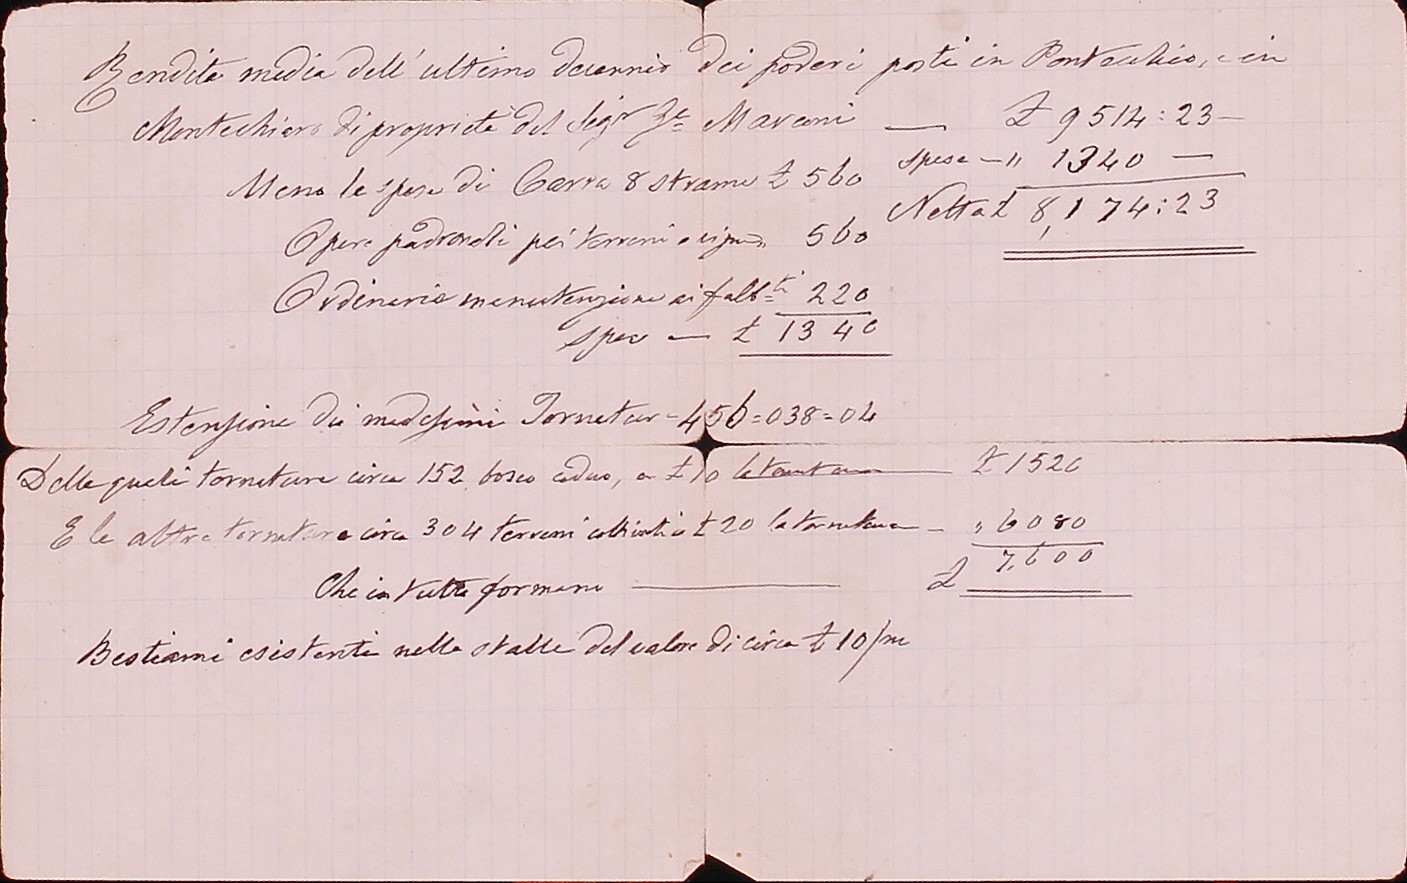 Rendita media dell'ultimo decennio dei poderi posti in Pontecchio, e in
Montechiaro di proprietà del Sigr Ge Marconi — £ 9514:23—
spese — „ 1340 —
Meno le spese di Carra 8 strame £ 560
Netta £ 8,174:23
Opere padronali pei terreni e 560
Ordinaria manutenzione ai fabbti 220
Spese — £ 1340
Estensione dei medesimi Tornature - 456=038=04
Delle quali tornature circa 152 bosco ceduo, a £ 10 la tornatura £ 1520
E le altre tornature circa 304 terreni coltivati a £ 20 la tornatura — „ 6080
Che in tutto formano — £ 7,600
Bestiami esistenti nelle stalle del valore di circa £ 10/m